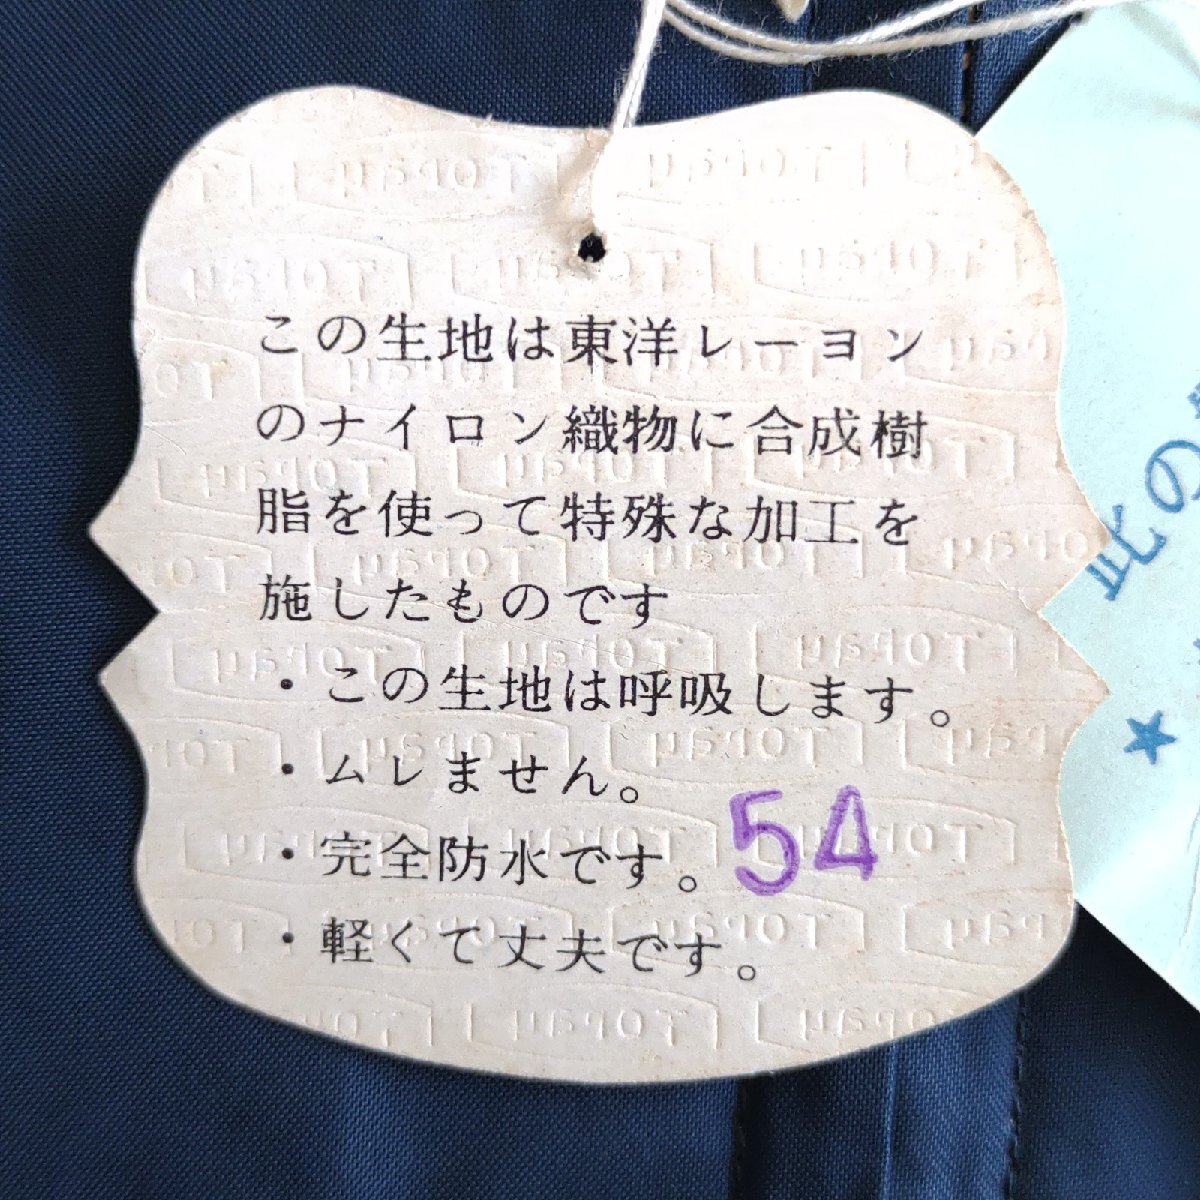 この生地は東洋レーヨン
のナイロン織物に合成樹
脂を使って特殊な加工を
施したものです
・この生地は呼吸します。
・ムレません。
・完全防水です。
・軽くて丈夫です。
54
此の
★